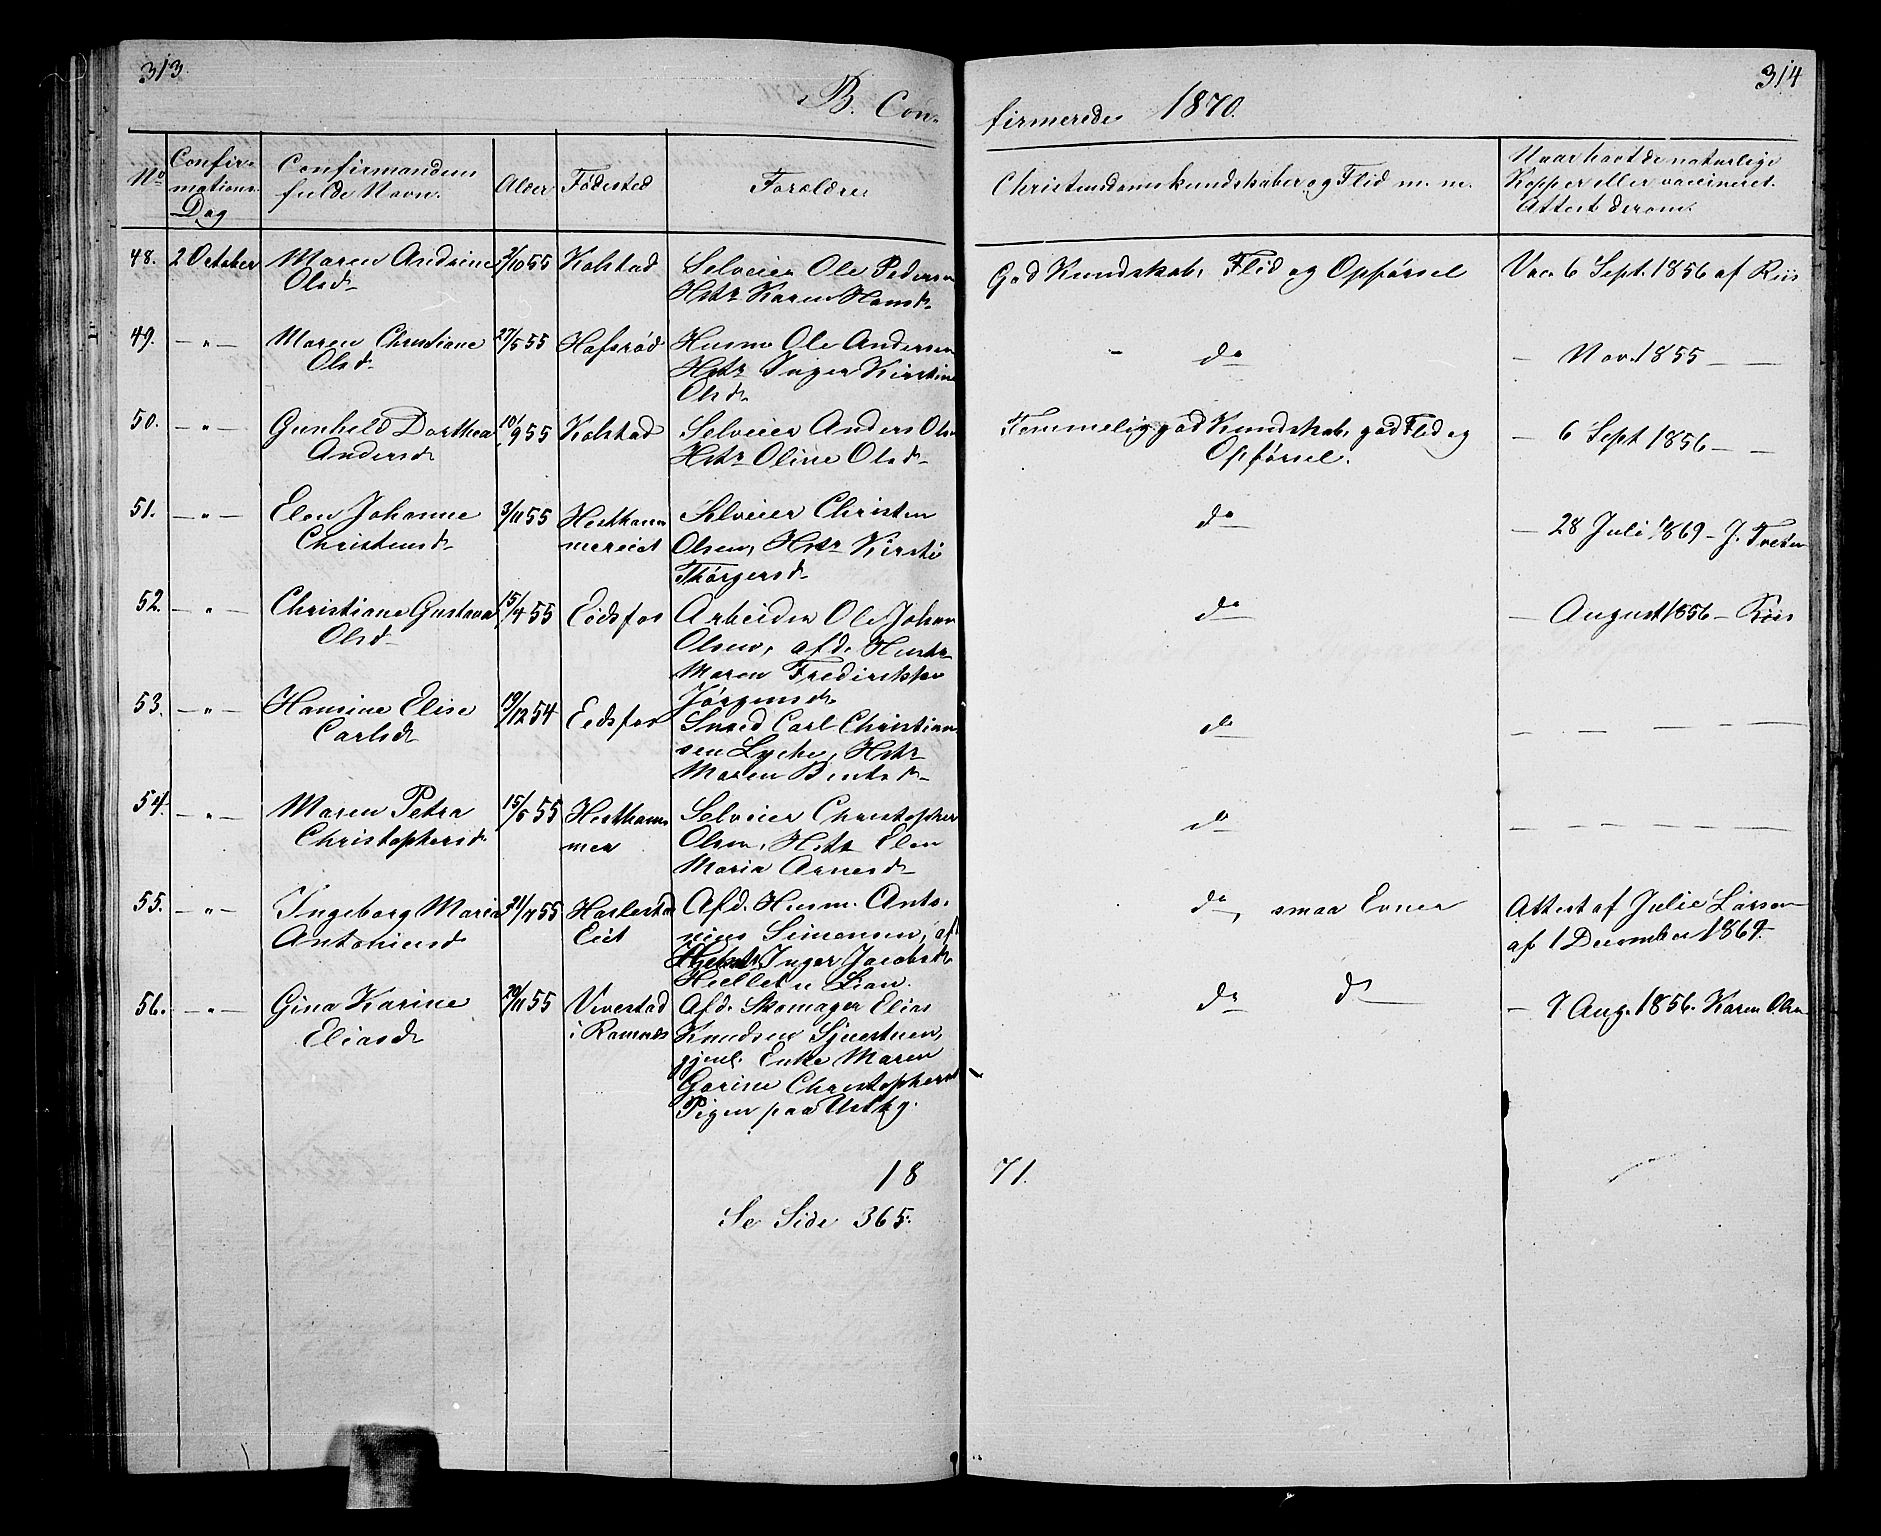 313.
314
B. Con-
firmerede 1870.
No
Confir-
mations-
Dag
Confirmandens
fulde Navn.
Alder
Födested
Forældre
Christendomskundskaber og Flid m. m.
Naar havt de naturlige
Kopper eller vaccineret.
Attest derom.
48. 2 October Maren Andrine 3/10 55 Kolstad Selveier Ole Pedersen God Kundskab, Flid og Opførsel Vac. 6 Sept. 1856 af Riis
Olsdr Hstr Karen Hansdr
49. — " — Maren Christiane 27/5 55 Hafsrød Husm Ole Andersen - do — Nov. 1855 — —
Olsdr Hstr Inger Kirstine
Olsdr
50. — " — Gunhild Dorthea 10/9 55 Kolstad Selveier Anders Olsen Temmelig god Kundskab, god Flid og — 6 Sept 1856 — —
Andersdr Hstr Oline Olsdr Opførsel.
51. — " — Elen Johanne 3/11 55 Hestham- Selveier Christen do — 28 Juli 1869 — J. Tveten
Christensdr mereiet Olsen, Hstr Kirsti
Thorgersdr
52. — " — Christiane Gustava 15/4 55 Eidsfos Arbeider Ole Johan do — August 1856 — Riis
Olsdr Olsen, afd. Hustr
Maren Fredrikke
Jørgensdr
53. — " — Hansine Elise 19/12 54 Eidsfos Smed Carl Christian- do — — — —
Carlsdr sen Lyche, Hstr
Maren Berntsdr
54. — " — Maren Petra 15/5 55 Hestham- Selveier Christopher do — — — —
Christophersdr mer Olsen, Hstr Elen
Maria Arnesdr
55. — " — Ingeborg Maria 21/7 55 Haslestad Afd. Husm. Anto- do, smaa Evner Attest af Julie Larsen
Antonisdr Eiet nius Simensen, af
af 1 December 1869.
Inger Jacobsdr
Hiellet u Lian.
56. — " — Gina Karine 20/11 55 Vivestad Afd. Skomager Elias do do — 7 Aug. 1856. Karen Olsen
Eliasdr i Ramnæs Knudsen Sjuestuen,
gjenl. Enke Maren
Gorine Christophersd
Pigen paa Ustkg.
18 71.
Se Side 365.